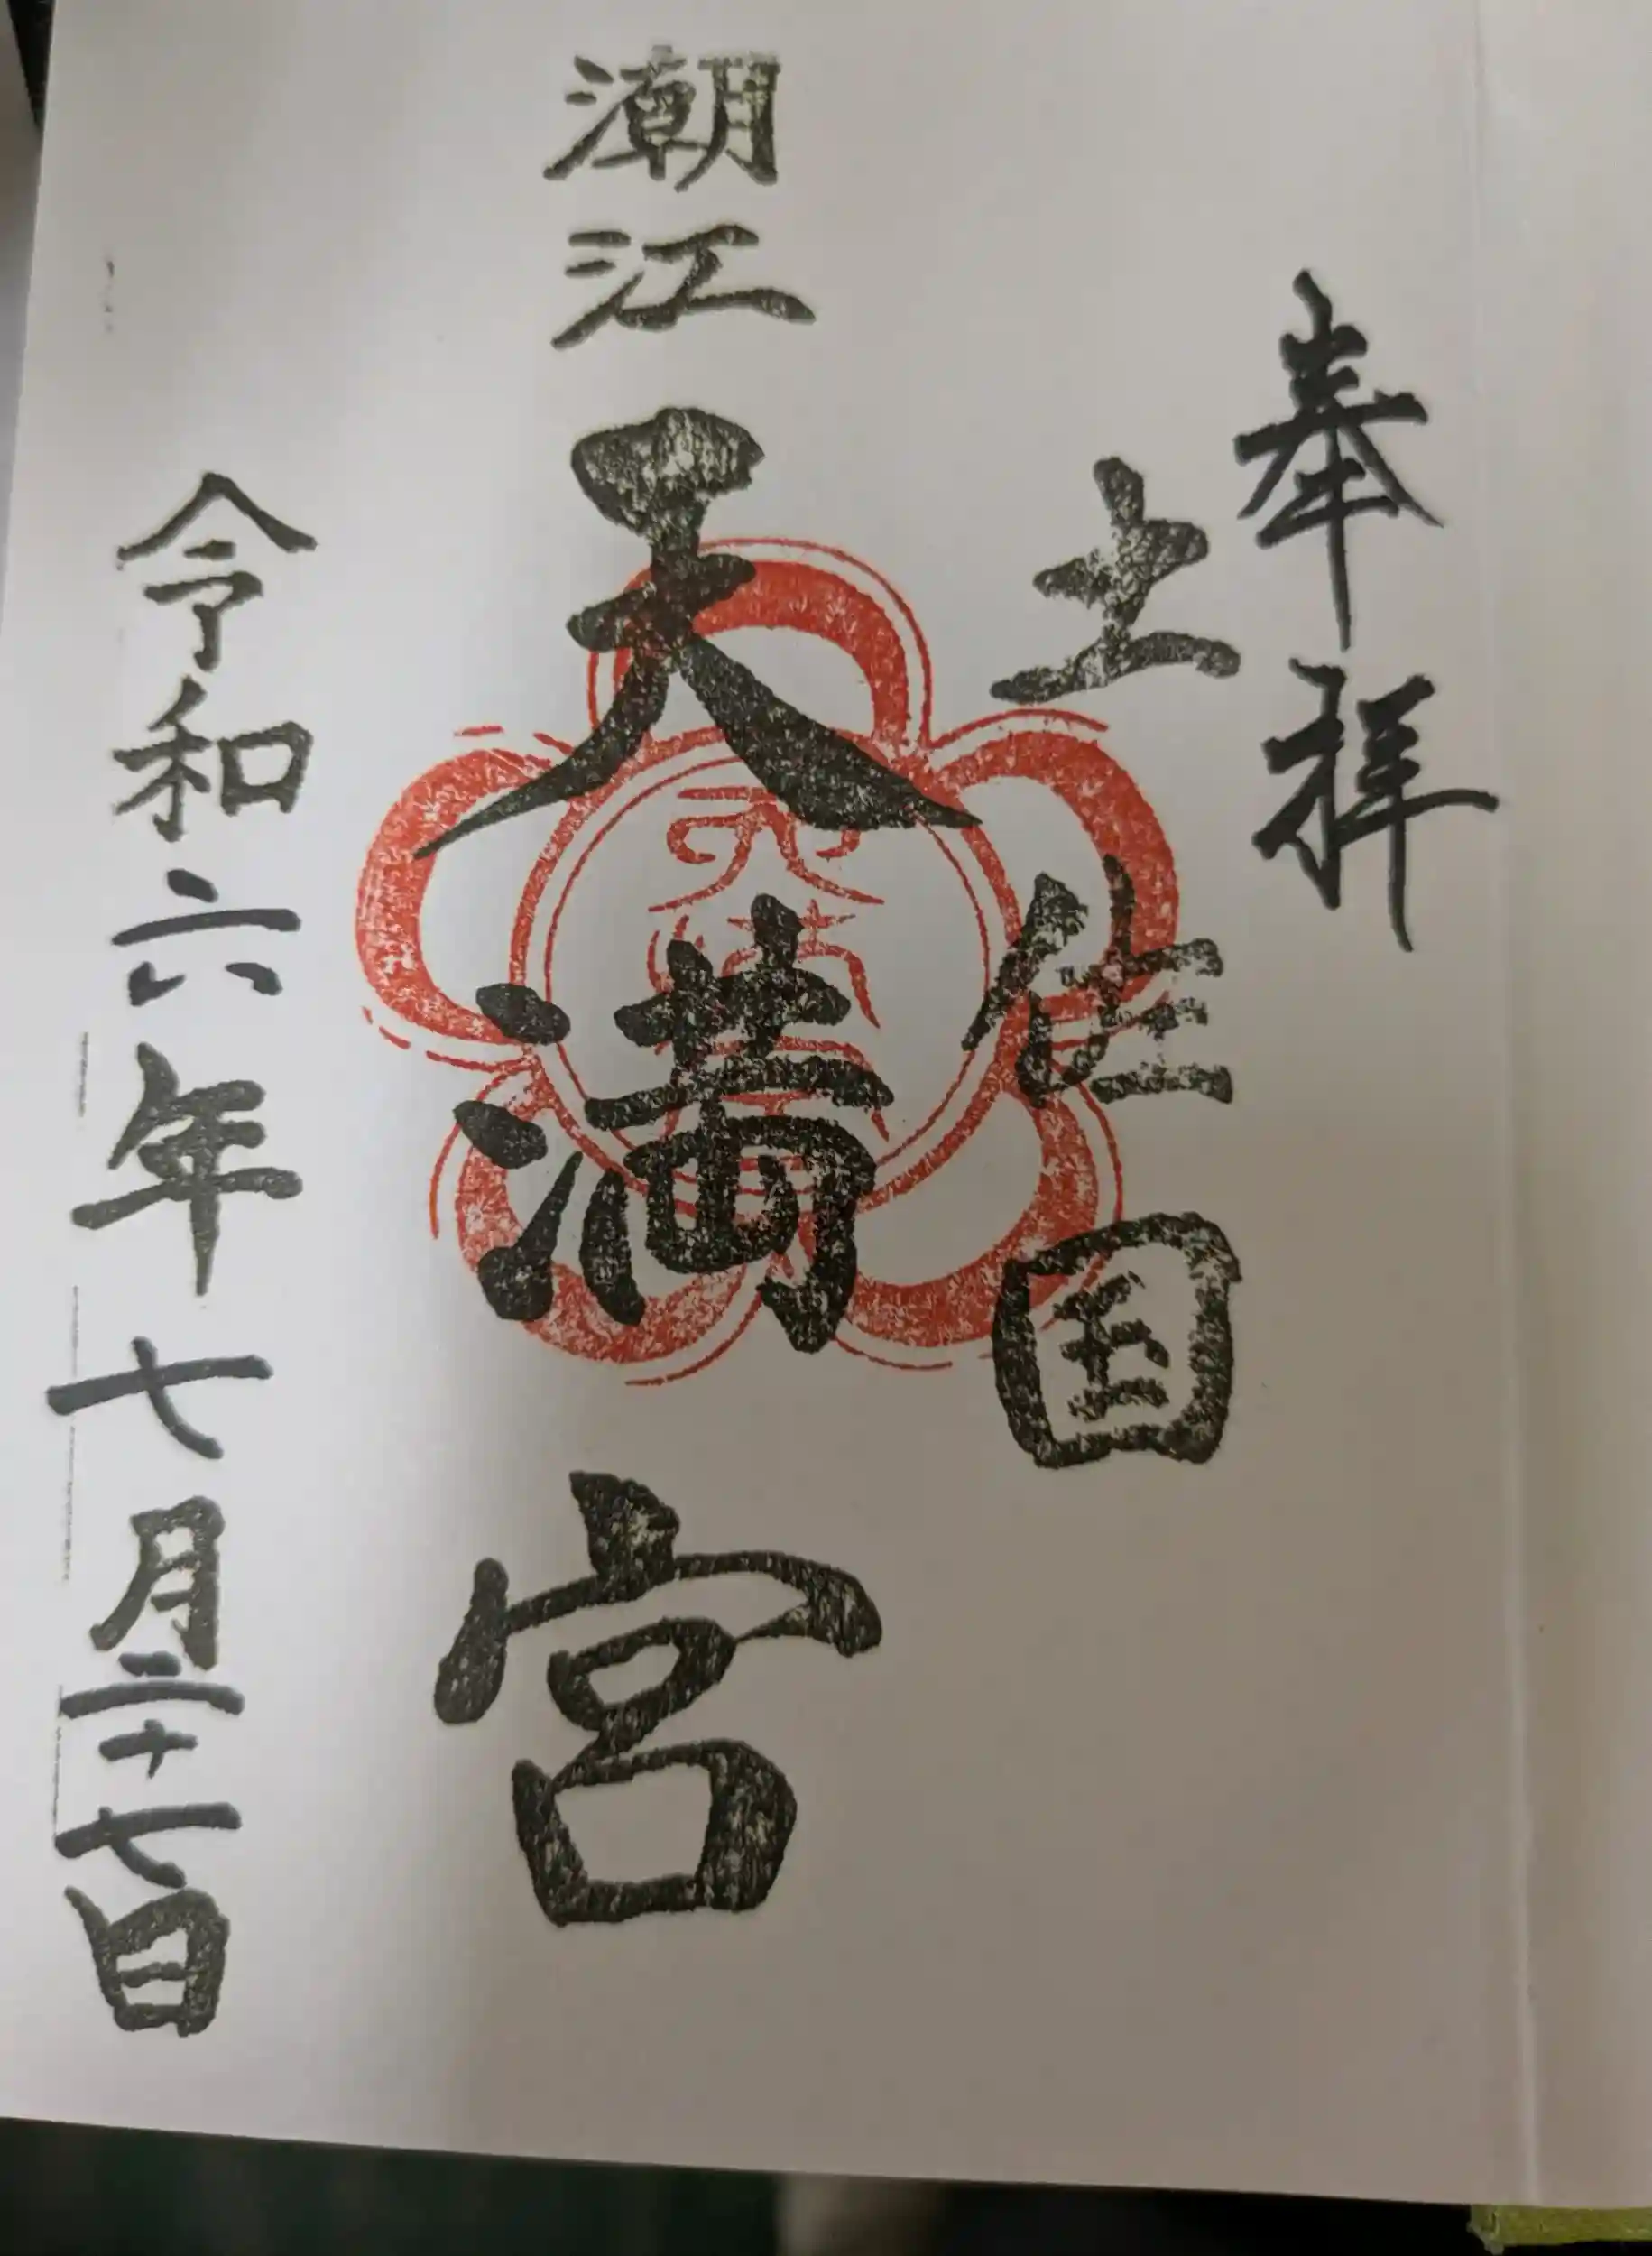 奉拝
土佐国
潮江天満宮
天満宮
令和六年七月二十七日